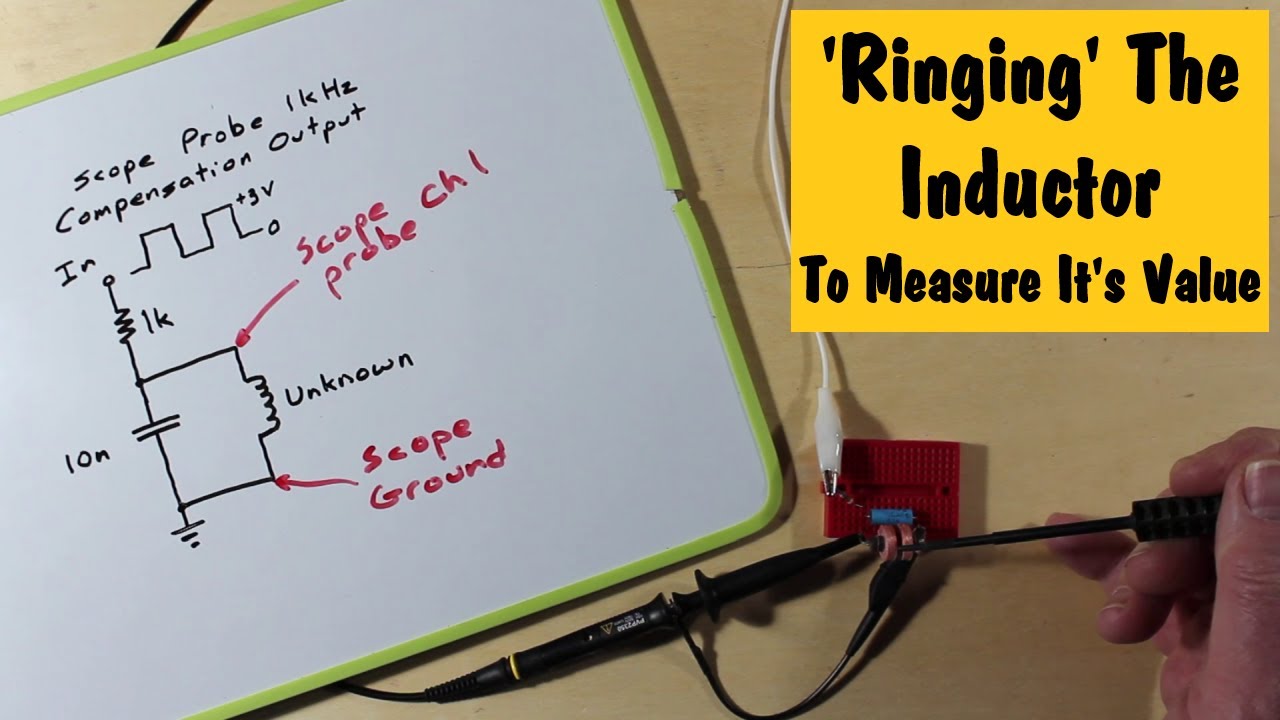 'Ringing' The
Inductor
To Measure It's Value
Scope Probe 1kHz
Compensation Output
+3V
0
In
1k
10n
Unknown
Scope Ch 1
probe
Scope
Ground
PVP2350